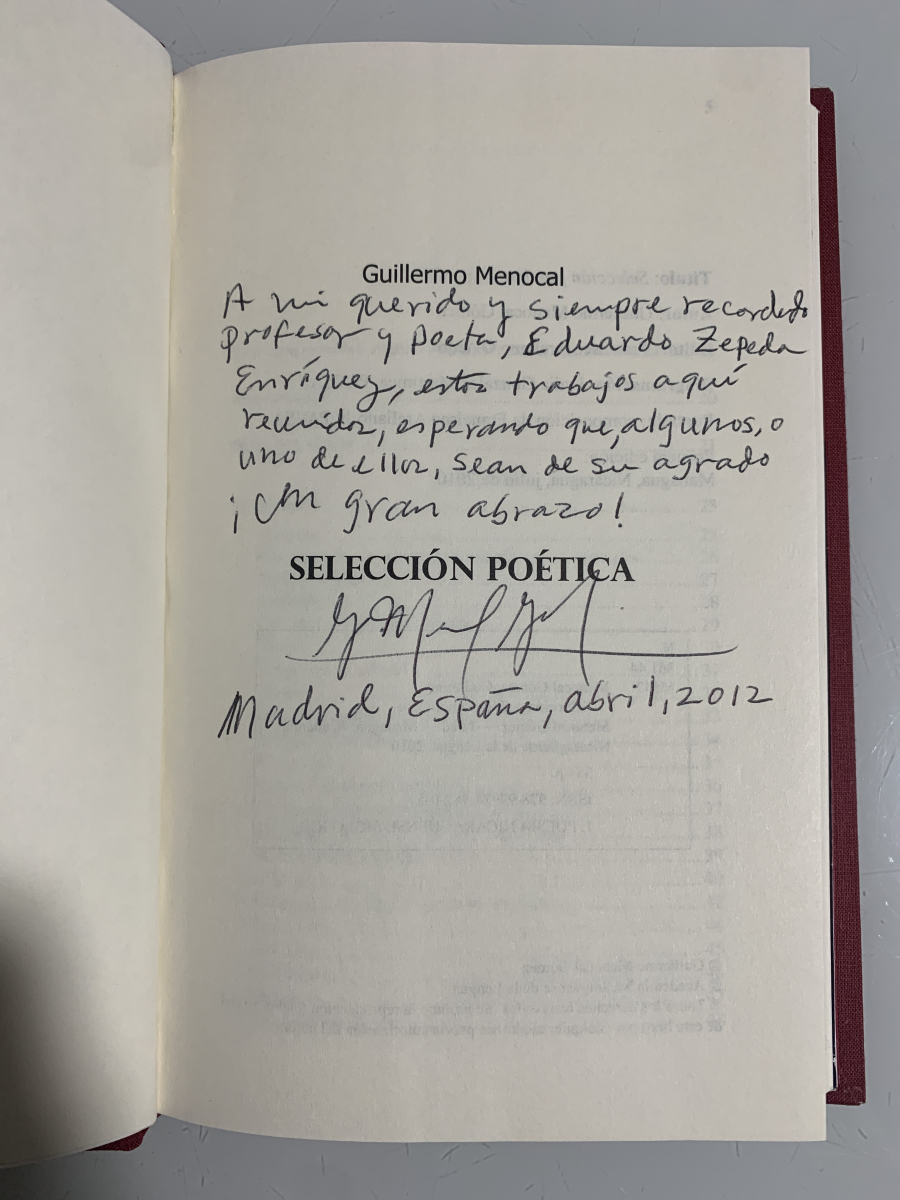 Guillermo Menocal
A mi querido y siempre recordado
profesor y poeta, Eduardo Zepeda
Enríquez, estos trabajos aquí
reunidos, esperando que, algunos, o
uno de ellos, sean de su agrado
¡Un gran abrazo!
SELECCIÓN POÉTICA
Madrid, España, abril, 2012